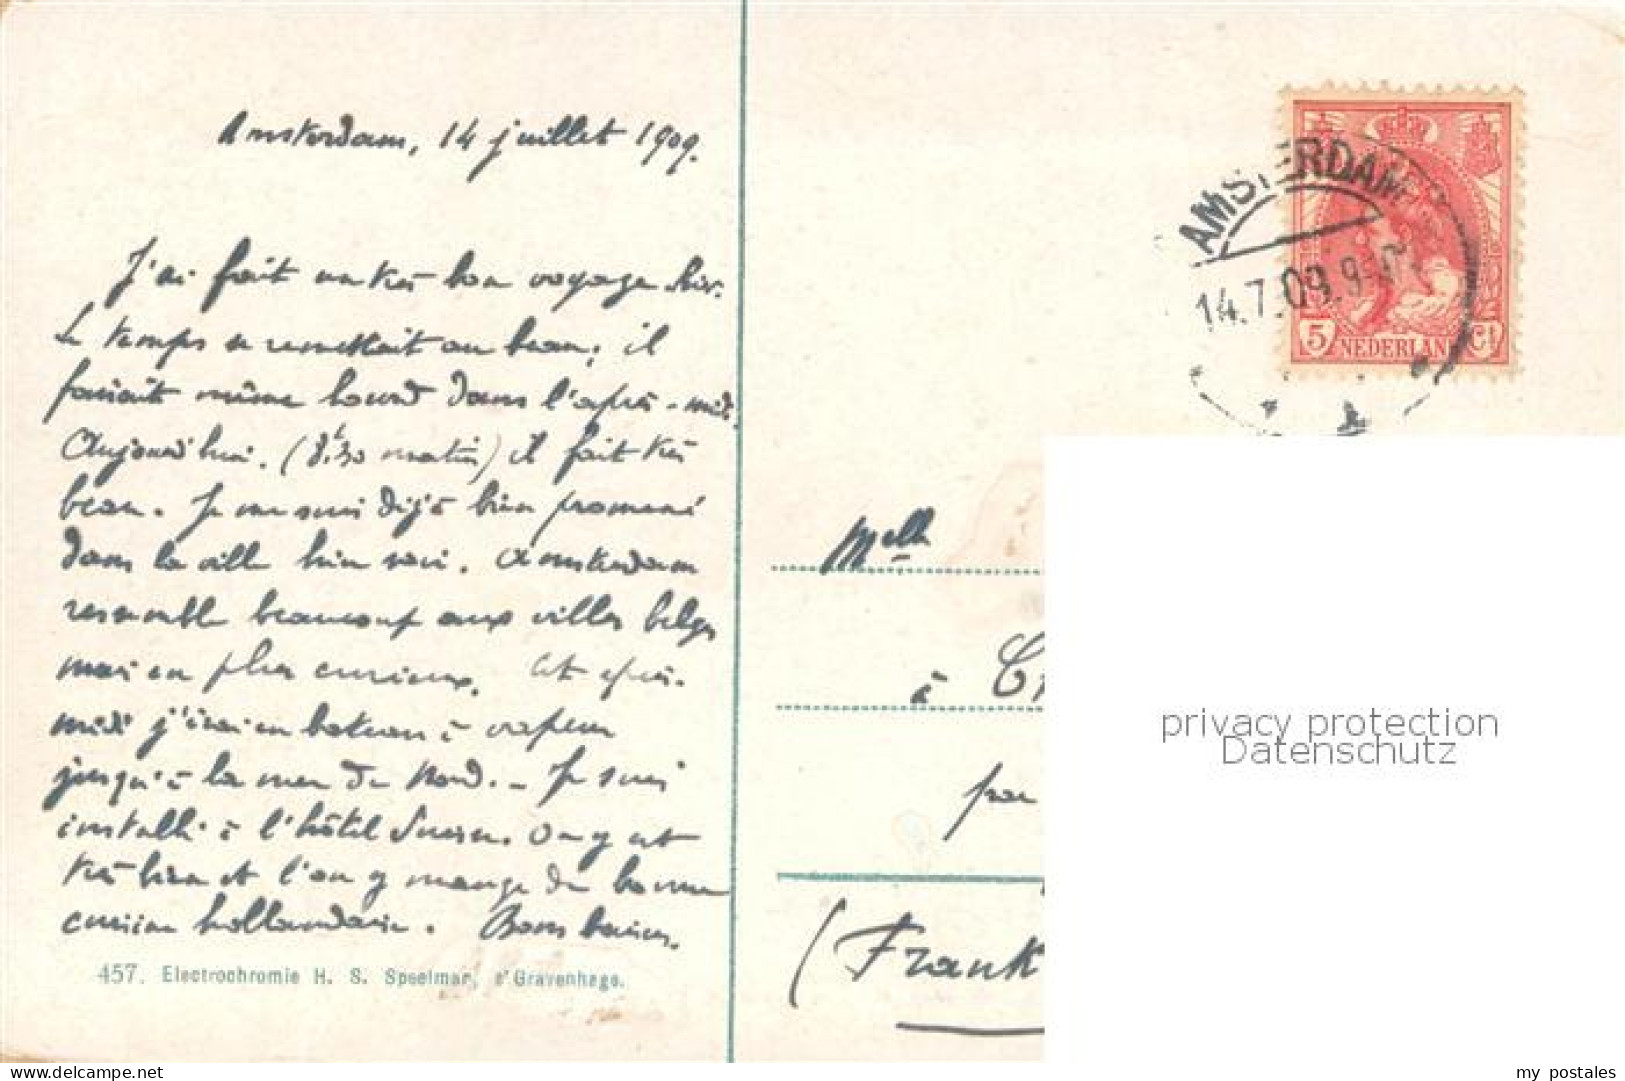 Amsterdam, 14 juillet 1909.
J'ai fait un très bon voyage hier.
Le temps se remettait au beau; il
faisait même lourd dans l'après-midi.
Aujourd'hui. (8h30 matin) il fait très
beau. Je me suis déjà bien promené
dans la ville hier soir. Amsterdam
ressemble beaucoup aux villes belges
mais en plus curieux. Cet après-
midi j'irai en bateau à vapeur
jusqu'à la mer du Nord. - Je suis
installé à l'hôtel Suisse. On y est
très bien et l'on y mange de bonne
cuisine hollandaise. Bons baisers.
457. Electrochromie H. S. Speelman, s'Gravenhage.
AMSTERDAM
14.7.09.9
5 NEDERLAND Ct
Melle
à
par
(Frank
privacy protection
Datenschutz
my postales